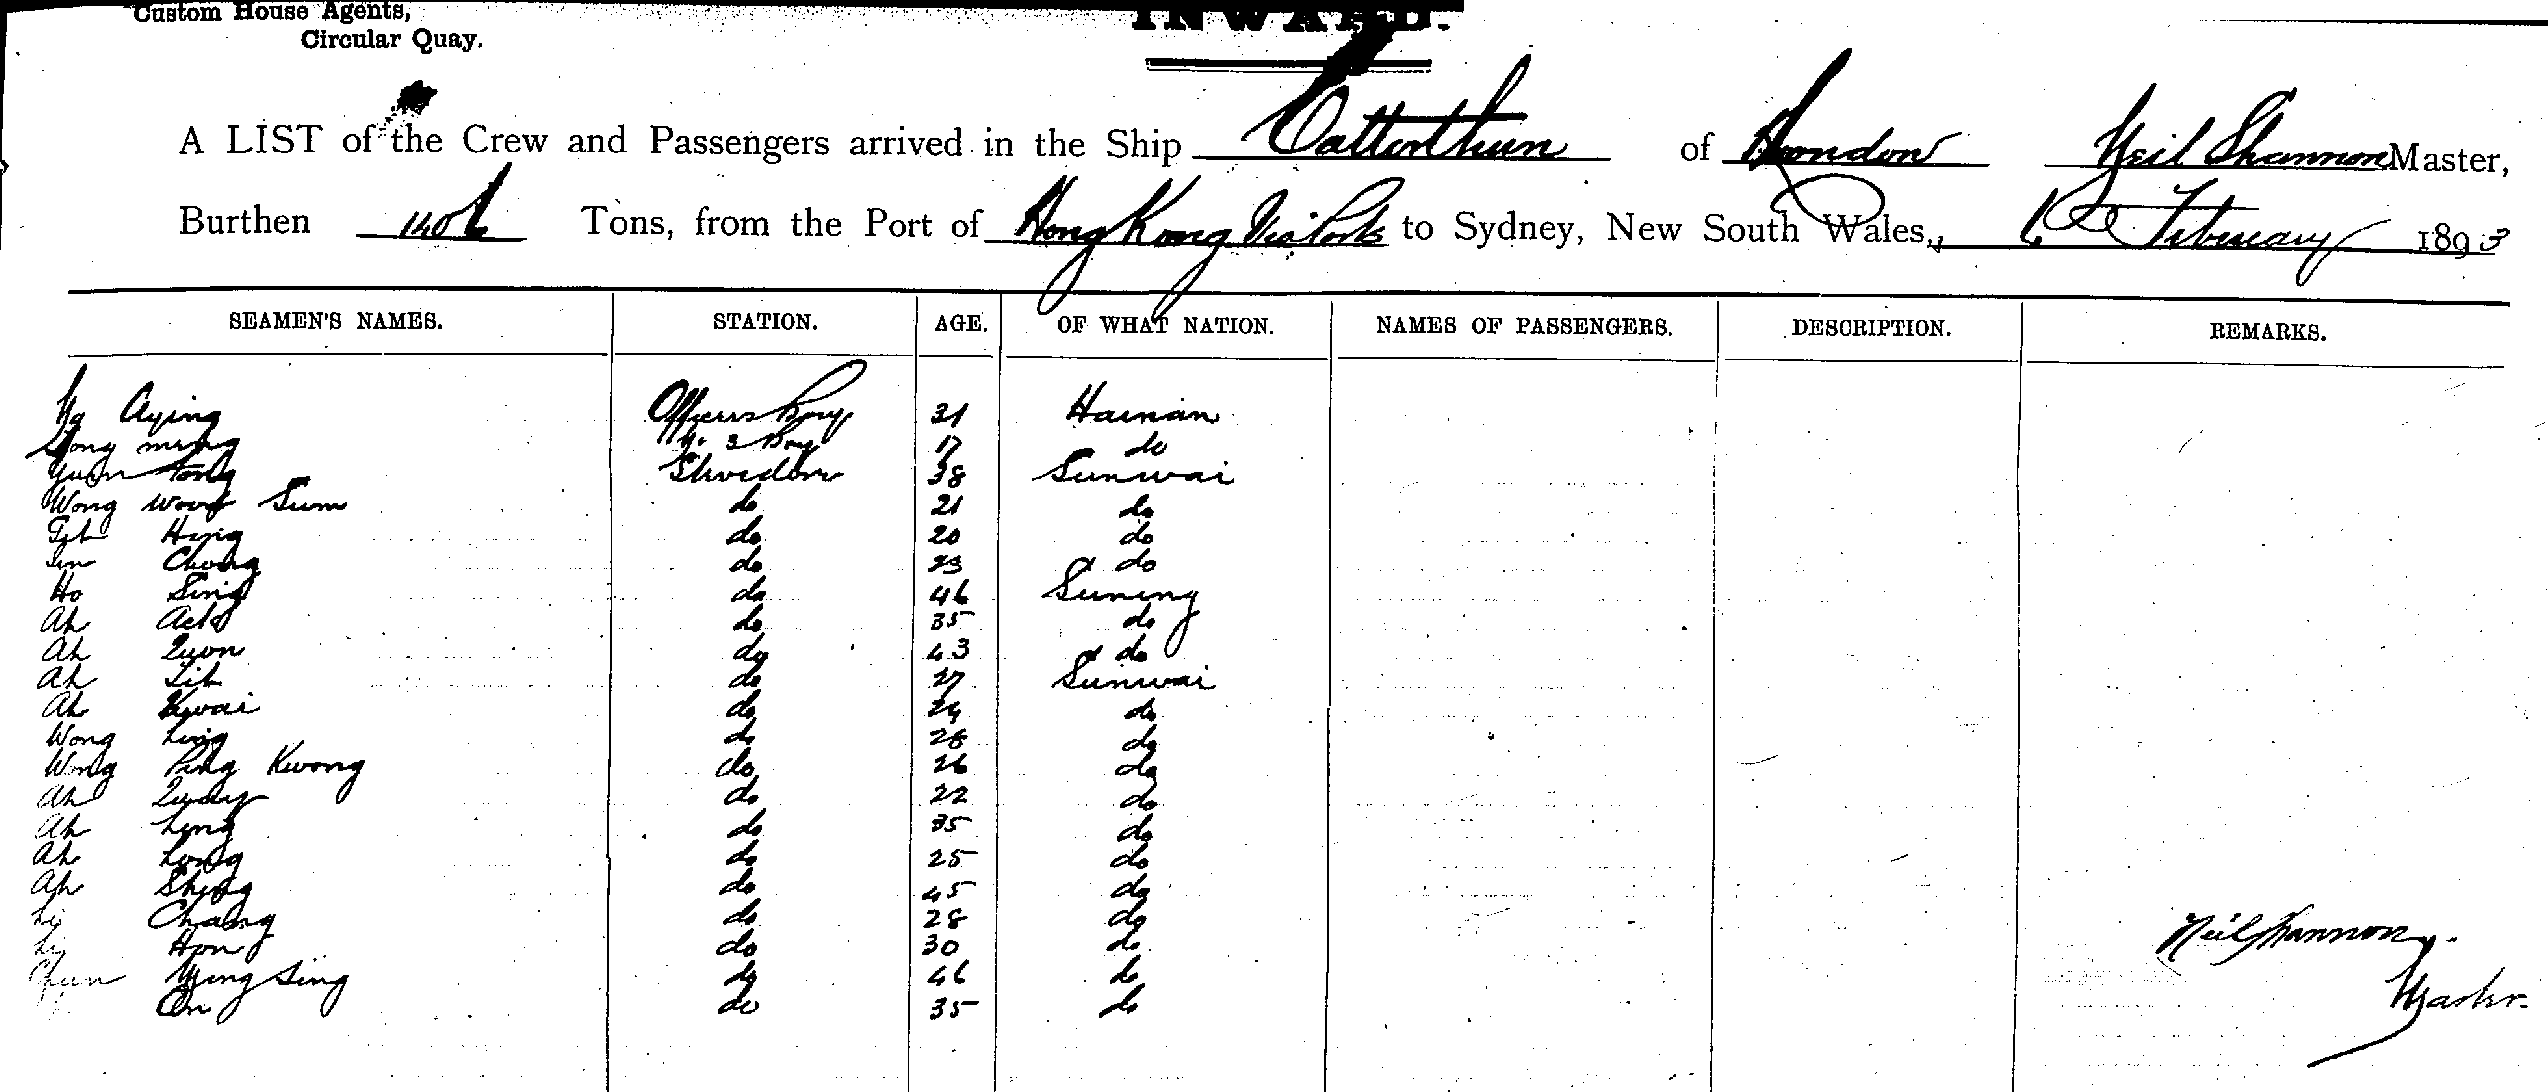 Custom House Agents,
Circular Quay.
INWARD.
A LIST of the Crew and Passengers arrived in the Ship Catterthun of London Neil Shannon Master,
Burthen 1406 Tons, from the Port of Hong Kong Via Ports to Sydney, New South Wales, February 1893
SEAMEN'S NAMES. STATION. AGE. OF WHAT NATION. NAMES OF PASSENGERS. DESCRIPTION. REMARKS.
Ng Aying Officers Boy 31 Hainan
ming No 3 Boy 17 do
Yuen Tong 38 Sunwai
Wong Sum do 21 do
Hing do 20 do
Chong do 23 do
Ho Sing do 46 Suning
Ah do 35 do
Ah Quon do 43 do
Ah do 27 Sunwai
Ah Kwai do do
Wong Ling do 28 do
Wong Ping Kwong do 26 do
Ah do 22 do
Ah Ling do 35 do
Ah Long do 25 do
Ah Shing do 45 do
Chang do 28 do
Hon do 30 do
Chun Ming Sing do 46 do
On do 35 do
Neil Shannon
Master.